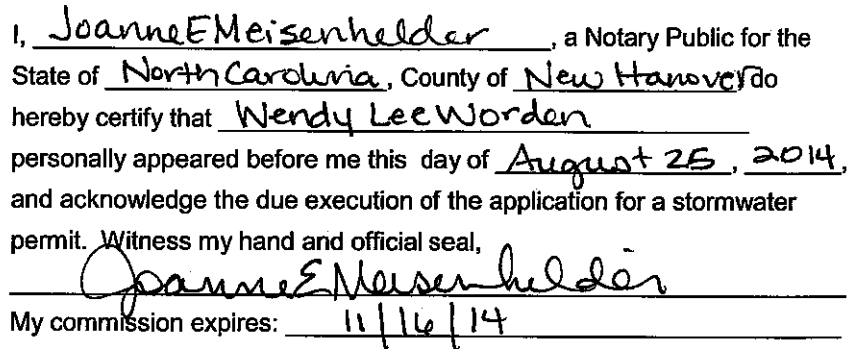 I, Joanne E Meisenhelder, a Notary Public for the
State of North Carolina, County of New Hanover do
hereby certify that Wendy Lee Worden
personally appeared before me this day of August 25, 2014,
and acknowledge the due execution of the application for a stormwater
permit. Witness my hand and official seal,
Joanne E Meisenhelder
My commission expires: 11/16/14